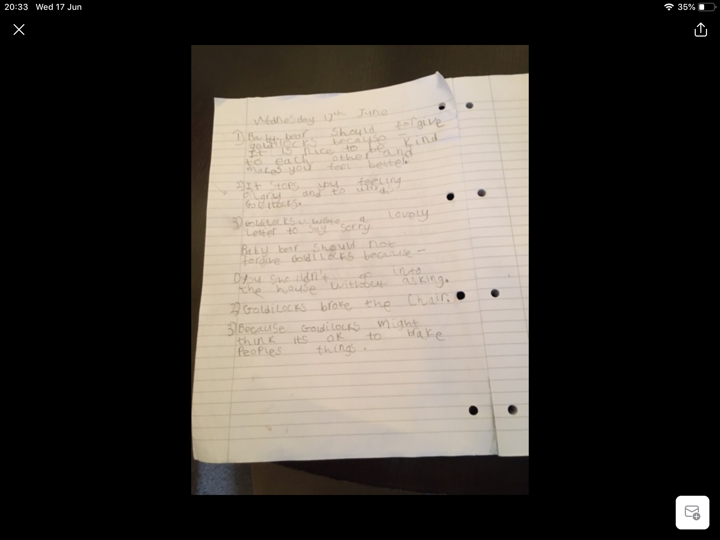 20:33 Wed 17 Jun
35%
Wednesday 17th June
1) Baby bear should forgive
goldilocks because –
It is nice to be kind
to each other and
makes you feel better.
2) It stops you feeling
and to
Goldilocks.
3) Goldilocks wrote a
Letter to say sorry
Baby bear should not
forgive Goldilocks because –
1) go into
the house without asking.
2) Goldilocks broke the Chair.
3) Because Goldilocks might
think its ok to
PeoPles things.